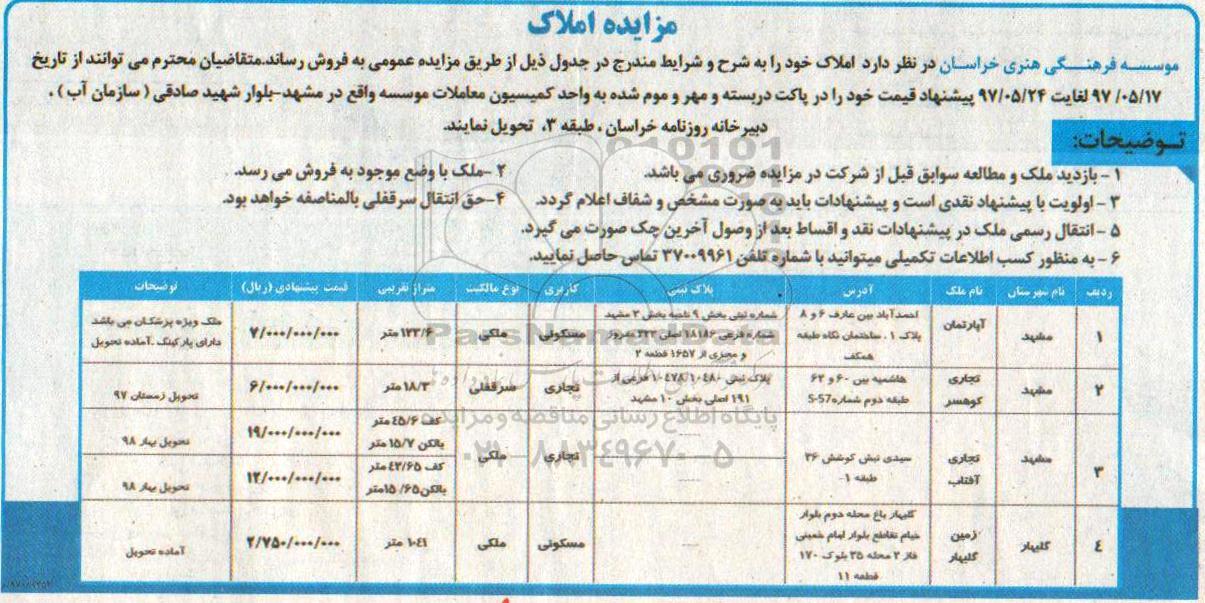 مزایده املاک
موسسه فرهنگی هنری خراسان در نظر دارد املاک خود را به شرح و شرایط مندرج در جدول ذیل از طریق مزایده عمومی به فروش رساند.متقاضیان محترم می توانند از تاریخ
۹۷/۰۵/۱۷ لغایت ۹۷/۰۵/۲۴ پیشنهاد قیمت خود را در پاکت دربسته و مهر و موم شده به واحد کمیسیون معاملات موسسه واقع در مشهد-بلوار شهید صادقی ( سازمان آب ) ،
دبیرخانه روزنامه خراسان ، طبقه ۳، تحویل نمایند.
توضیحات:
۱ - بازدید ملک و مطالعه سوابق قبل از شرکت در مزایده ضروری می باشد.
۲ -ملک با وضع موجود به فروش می رسد.
۳ - اولویت با پیشنهاد نقدی است و پیشنهادات باید به صورت مشخص و شفاف اعلام گردد.
۴-حق انتقال سرقفلی بالمناصفه خواهد بود.
۵ - انتقال رسمی ملک در پیشنهادات نقد و اقساط بعد از وصول آخرین چک صورت می گیرد.
۶ - به منظور کسب اطلاعات تکمیلی میتوانید با شماره تلفن ۳۷۰۰۹۹۶۱ تماس حاصل نمایید.
ردیف نام شهرستان نام ملک آدرس پلاک ثبتی کاربری نوع مالکیت متراژ تقریبی قیمت پیشنهادی (ریال) توضیحات
۱ مشهد آپارتمان
احمدآباد بین عارف ۶ و ۸
پلاک ۱ . ساختمان نگاه طبقه
همکف
شماره ثبتی بخش ۹ ناحیه بخش ۳ مشهد
شماره فرعی ۱۸۱۸۶ اصلی ۲۳۲ مفروز
و مجزی از ۱۶۵۷ قطعه ۲
مسکونی ملکی ۱۲۳/۶ متر ۷/۰۰۰/۰۰۰/۰۰۰
ملک ویژه پزشکان می باشد
دارای پارکینگ .آماده تحویل
۲ مشهد
تجاری
کوهسر
هاشمیه بین ۶۰ و ۶۲
طبقه دوم شماره S-57
پلاک ثبتی ۱۰۴۸۰/ ۱۰۴۷۸ فرعی از
۱۹۱ اصلی بخش ۱۰ مشهد
تجاری سرقفلی ۱۸/۳ متر ۶/۰۰۰/۰۰۰/۰۰۰ تحویل زمستان ۹۷
۳ مشهد
تجاری
آفتاب
سیدی نبش کوشش ۳۶
طبقه ۱-
-----
تجاری ملکی
کف ۴۵/۶ متر
بالکن ۱۵/۷ متر
۱۹/۰۰۰/۰۰۰/۰۰۰ تحویل بهار ۹۸
کف ۴۲/۶۵ متر
بالکن ۱۵/۶۵ متر
۱۲/۰۰۰/۰۰۰/۰۰۰ تحویل بهار ۹۸
۴ گلبهار
زمین
گلبهار
گلبهار باغ محله دوم بلوار
خیام تقاطع بلوار امام خمینی
فاز ۲ محله ۳۵ بلوک ۱۷۰
قطعه ۱۱
-----
مسکونی ملکی ۱۰۴۱ متر ۲/۷۵۰/۰۰۰/۰۰۰ آماده تحویل
ParsNamadData
پایگاه اطلاع رسانی مناقصه و مزایده
۰۲۱-۸۸۳۴۹۶۷۰-۵